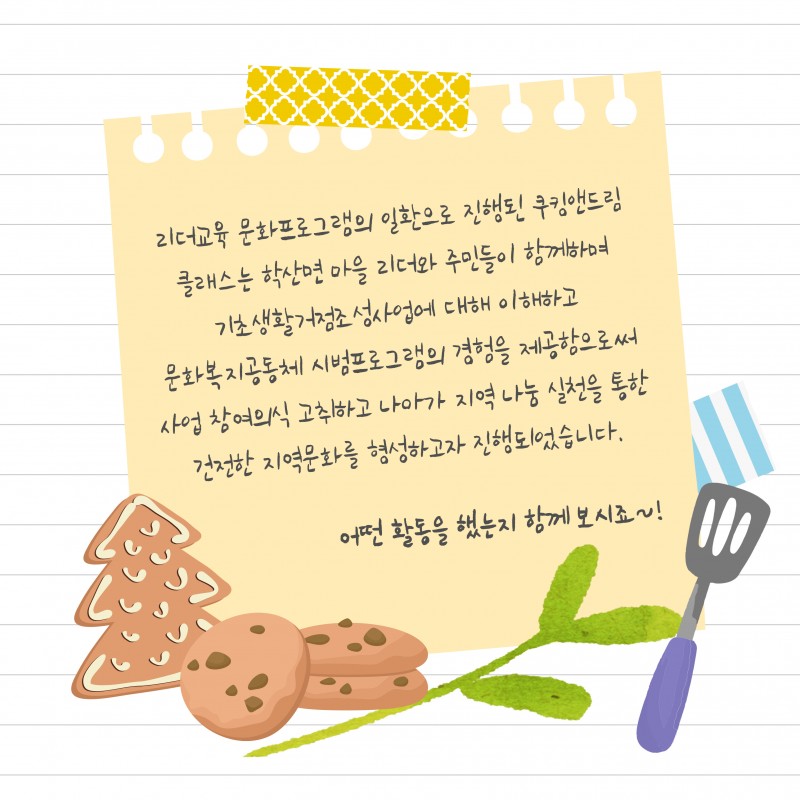 리더교육 문화프로그램의 일환으로 진행된 쿠킹앤드림
클래스는 학산면 마을 리더와 주민들이 함께하며
기초생활거점조성사업에 대해 이해하고
문화복지공동체 시범프로그램의 경험을 제공함으로써
사업 참여의식 고취하고 나아가 지역 나눔 실천을 통한
건전한 지역문화를 형성하고자 진행되었습니다.
어떤 활동을 했는지 함께 보시죠~!